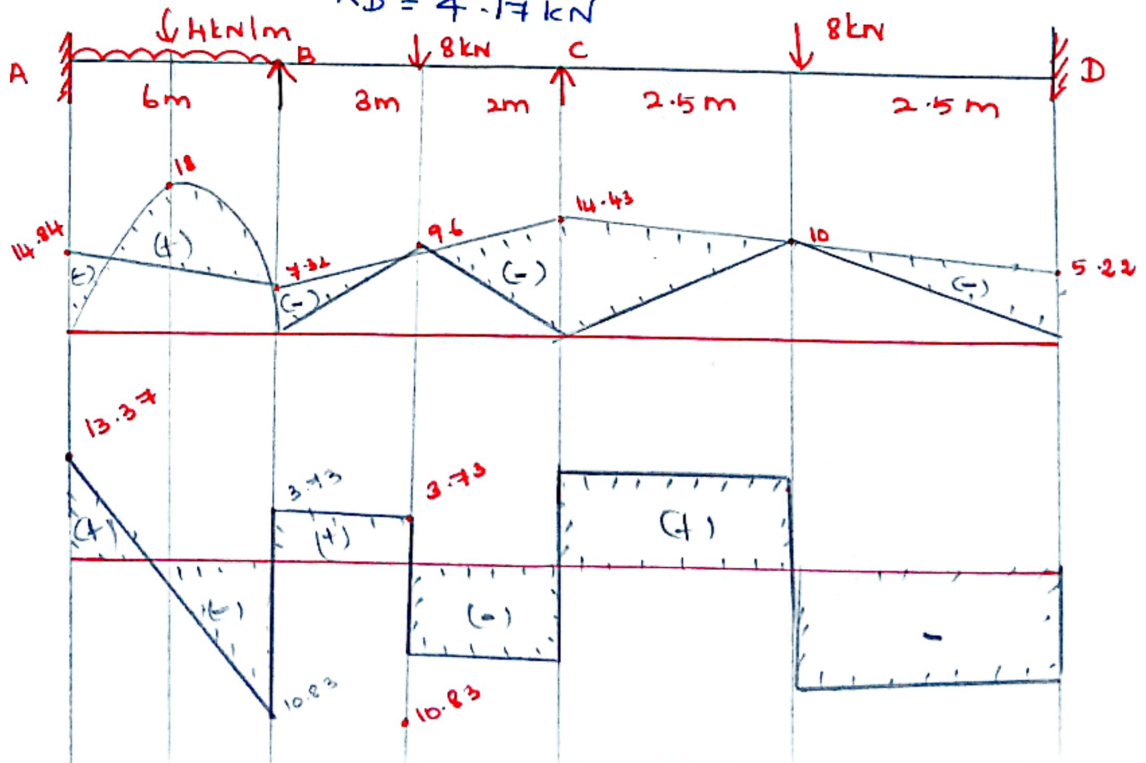 RD = 4.17 kN
4kN/m
8kN
8kN
A
B
C
D
6m
3m
2m
2.5m
2.5m
18
14.84
(+)
(-)
7.32
(-)
9.6
(-)
14.43
10
(-)
5.22
13.37
(+)
(-)
10.83
3.73
(+)
3.73
(-)
10.83
(+)
-